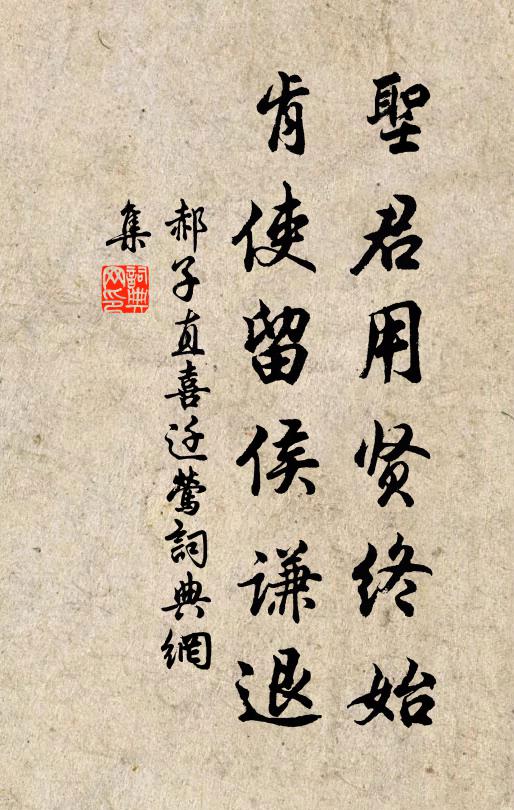 聖君用贤終始
肯使留侯謙退
郝子直喜迁鶯詞典網
集
詞典
网印